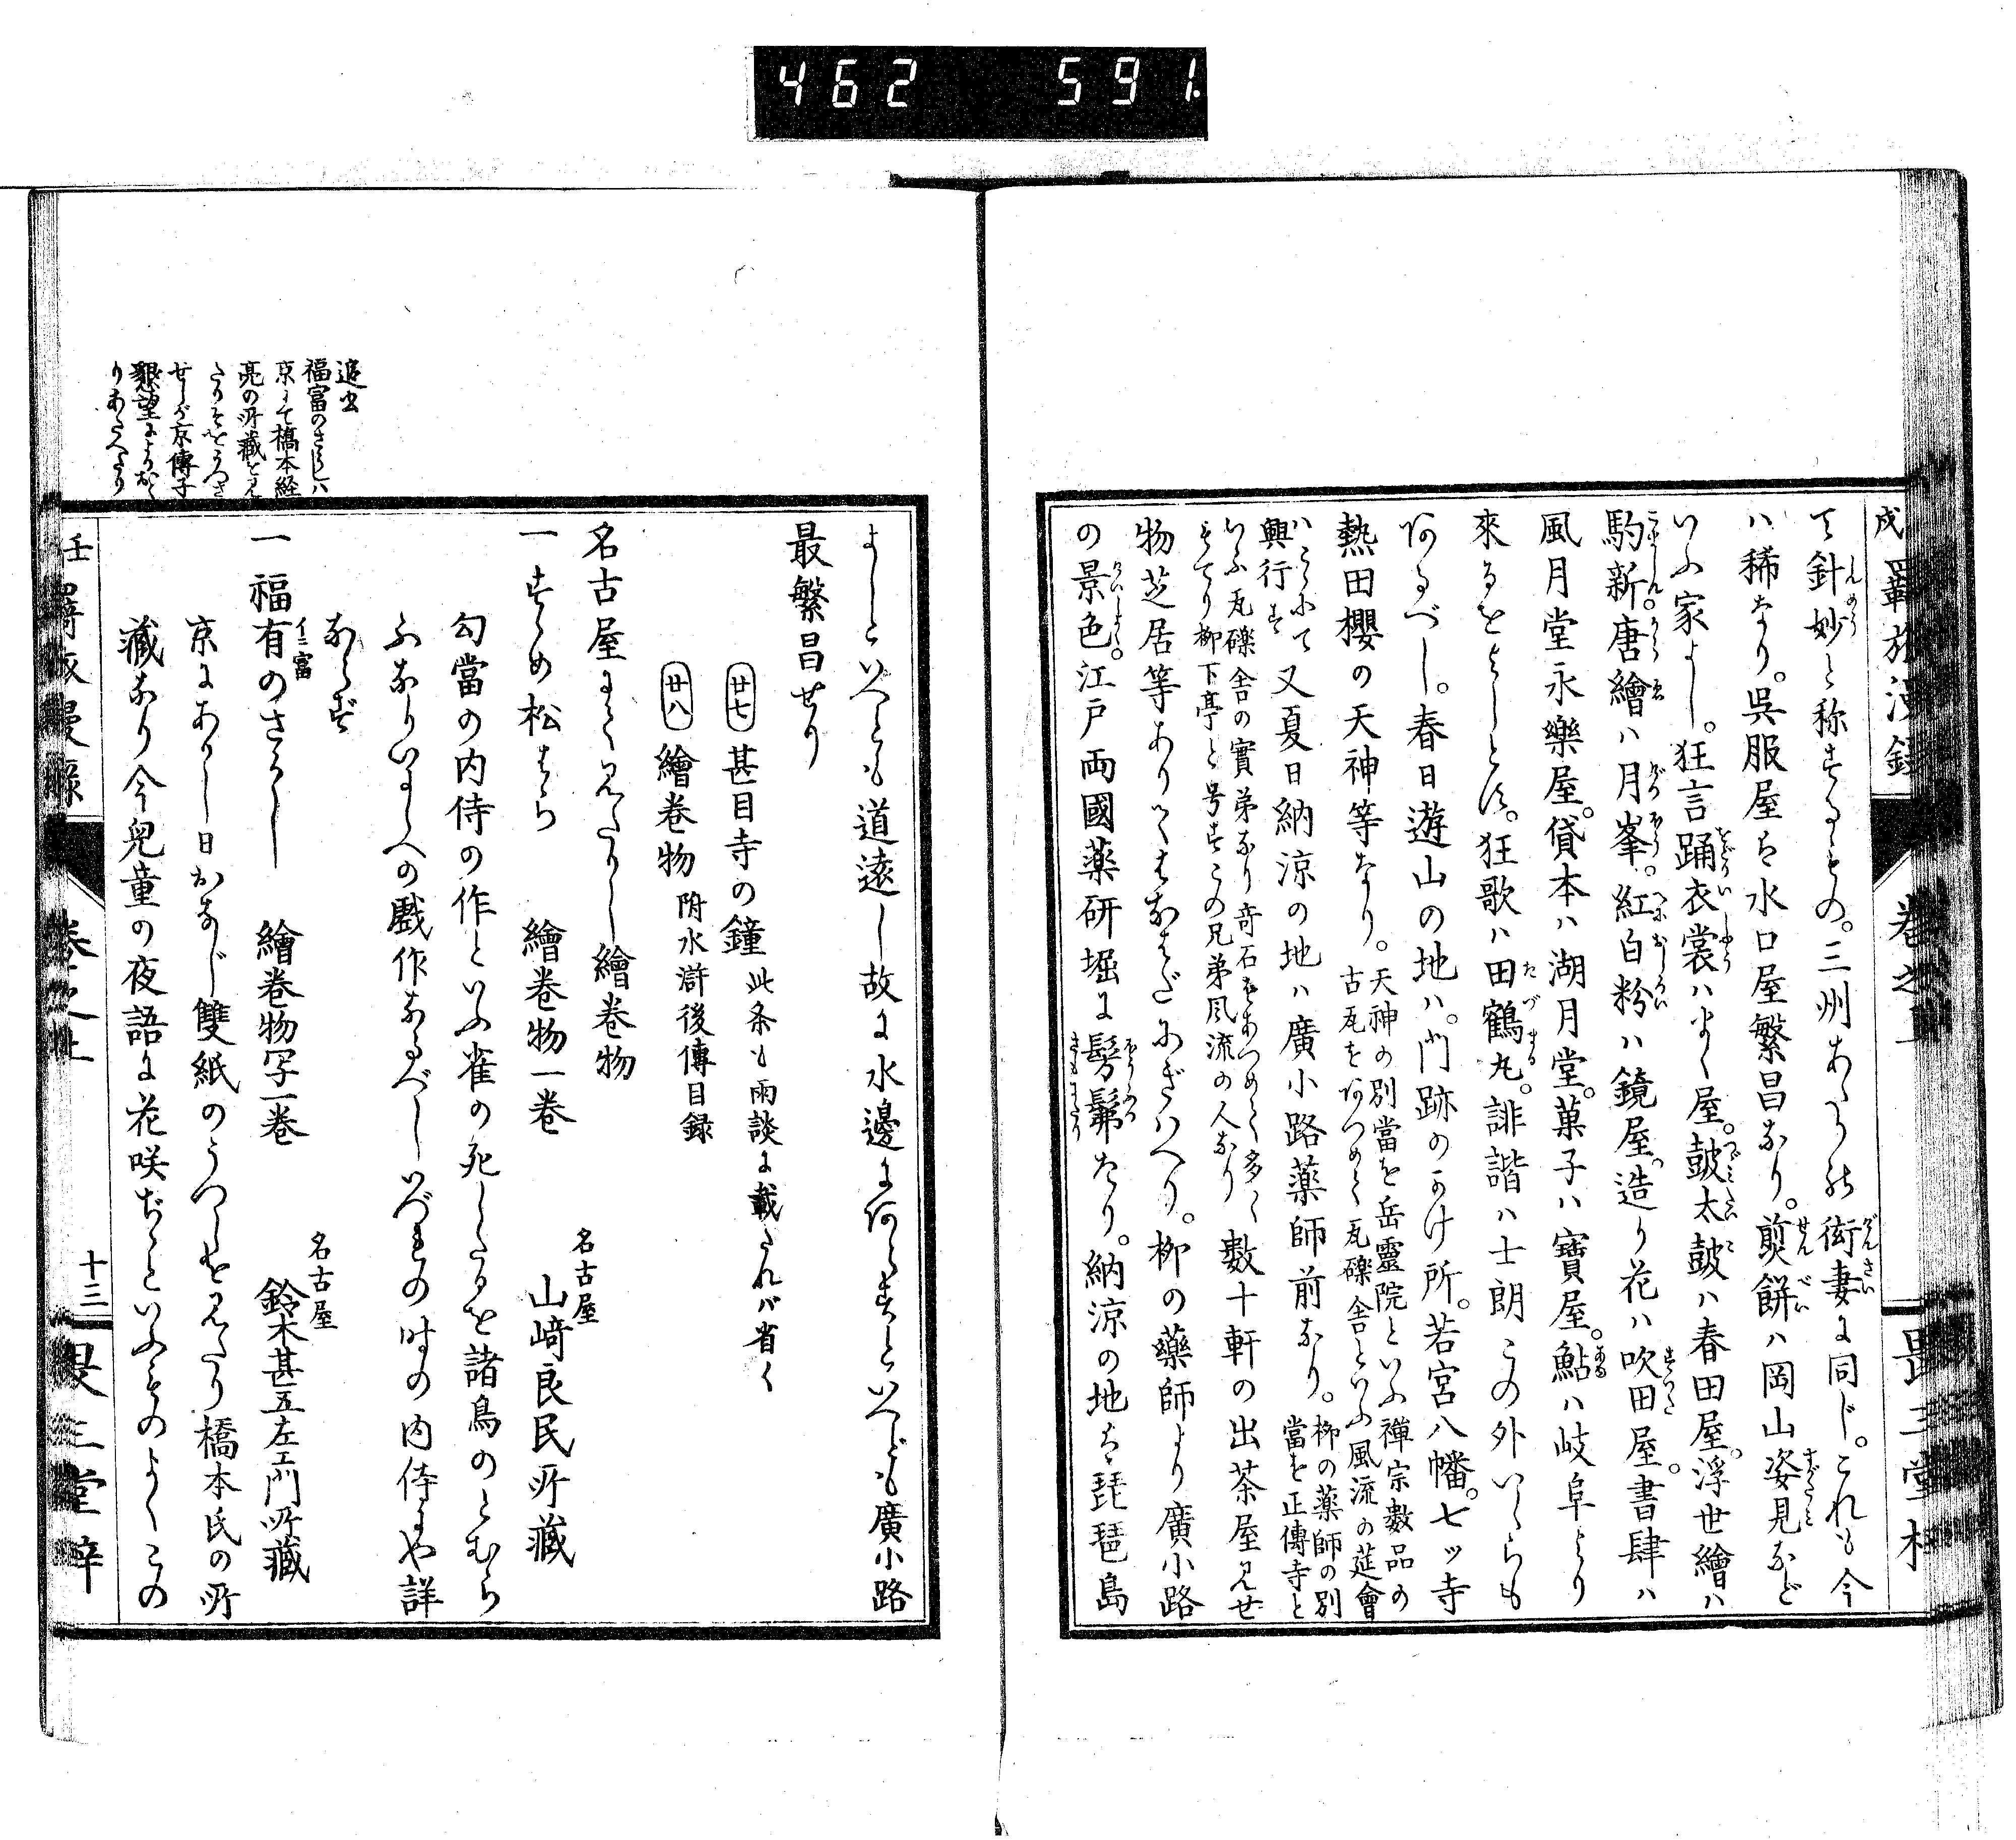 462 591.
て針妙と称するもの。三州あたりの衒妻に同じ。これも今
ハ稀なり。呉服屋は水口屋繁昌なり。煎餅ハ岡山姿見など
いふ家よし。狂言踊衣裳ハよく屋。鼓太鼓ハ春田屋。浮世繪ハ
駒新。唐繪ハ月峯。紅白粉ハ鏡屋。造り花ハ吹田屋。書肆ハ
風月堂永樂屋。貸本ハ湖月堂。菓子ハ寶屋。鮎ハ岐阜より
來るをよしとす。狂歌ハ田鶴丸。誹諧ハ士朗この外いくらも
あるべし。春日遊山の地ハ。門跡のかけ所。若宮八幡。七ッ寺
熱田櫻の天神等なり。
天神の別當を岳靈院といふ禪宗數品の
古瓦をあつめて瓦礫舎といふ風流の莚會
ハこゝにて
興行す
又夏日納涼の地ハ廣小路藥師前なり。
柳の薬師の別
當を正傳寺と
いふ瓦礫舎の實弟なり奇石をあつめて多く
もてり柳下亭と号すこの兄弟風流の人なり
數十軒の出茶屋見せ
物芝居等ありてはなはだにぎはへり。柳の藥師より廣小路
の景色。江戸両國薬研堀に髣髴たり。納涼の地は琵琶島
よしといへとも道遠し故に水邊にあらすといへども廣小路
最繁昌せり
廿七 甚目寺の鐘 此条も雨談に載たれバ省く
廿八 繪巻物 附水滸後傳目録
名古屋にて見たりし繪巻物
一 すゞめ松はら 繪巻物一巻 名古屋 山﨑良民所藏
勾當の内侍の作といふ雀の死したるを諸鳥のとむら
ふなりいにしへの戯作なるべしいづれの時の内侍にや詳
ならず
一 福有のさうし 繪巻物写一巻 名古屋 鈴木甚五左エ門所藏
イニ富
京にありし日おなじ雙紙のうつしを見たり橋本氏の所
藏なり今兒童の夜語に花咲ぢゝといふものよくこの
追書
福富のさうしハ
京にて橋本経
亮の所藏を見
たりそをうつさ
せしが京傳子
懇望によりおく
りあたへたり
十三